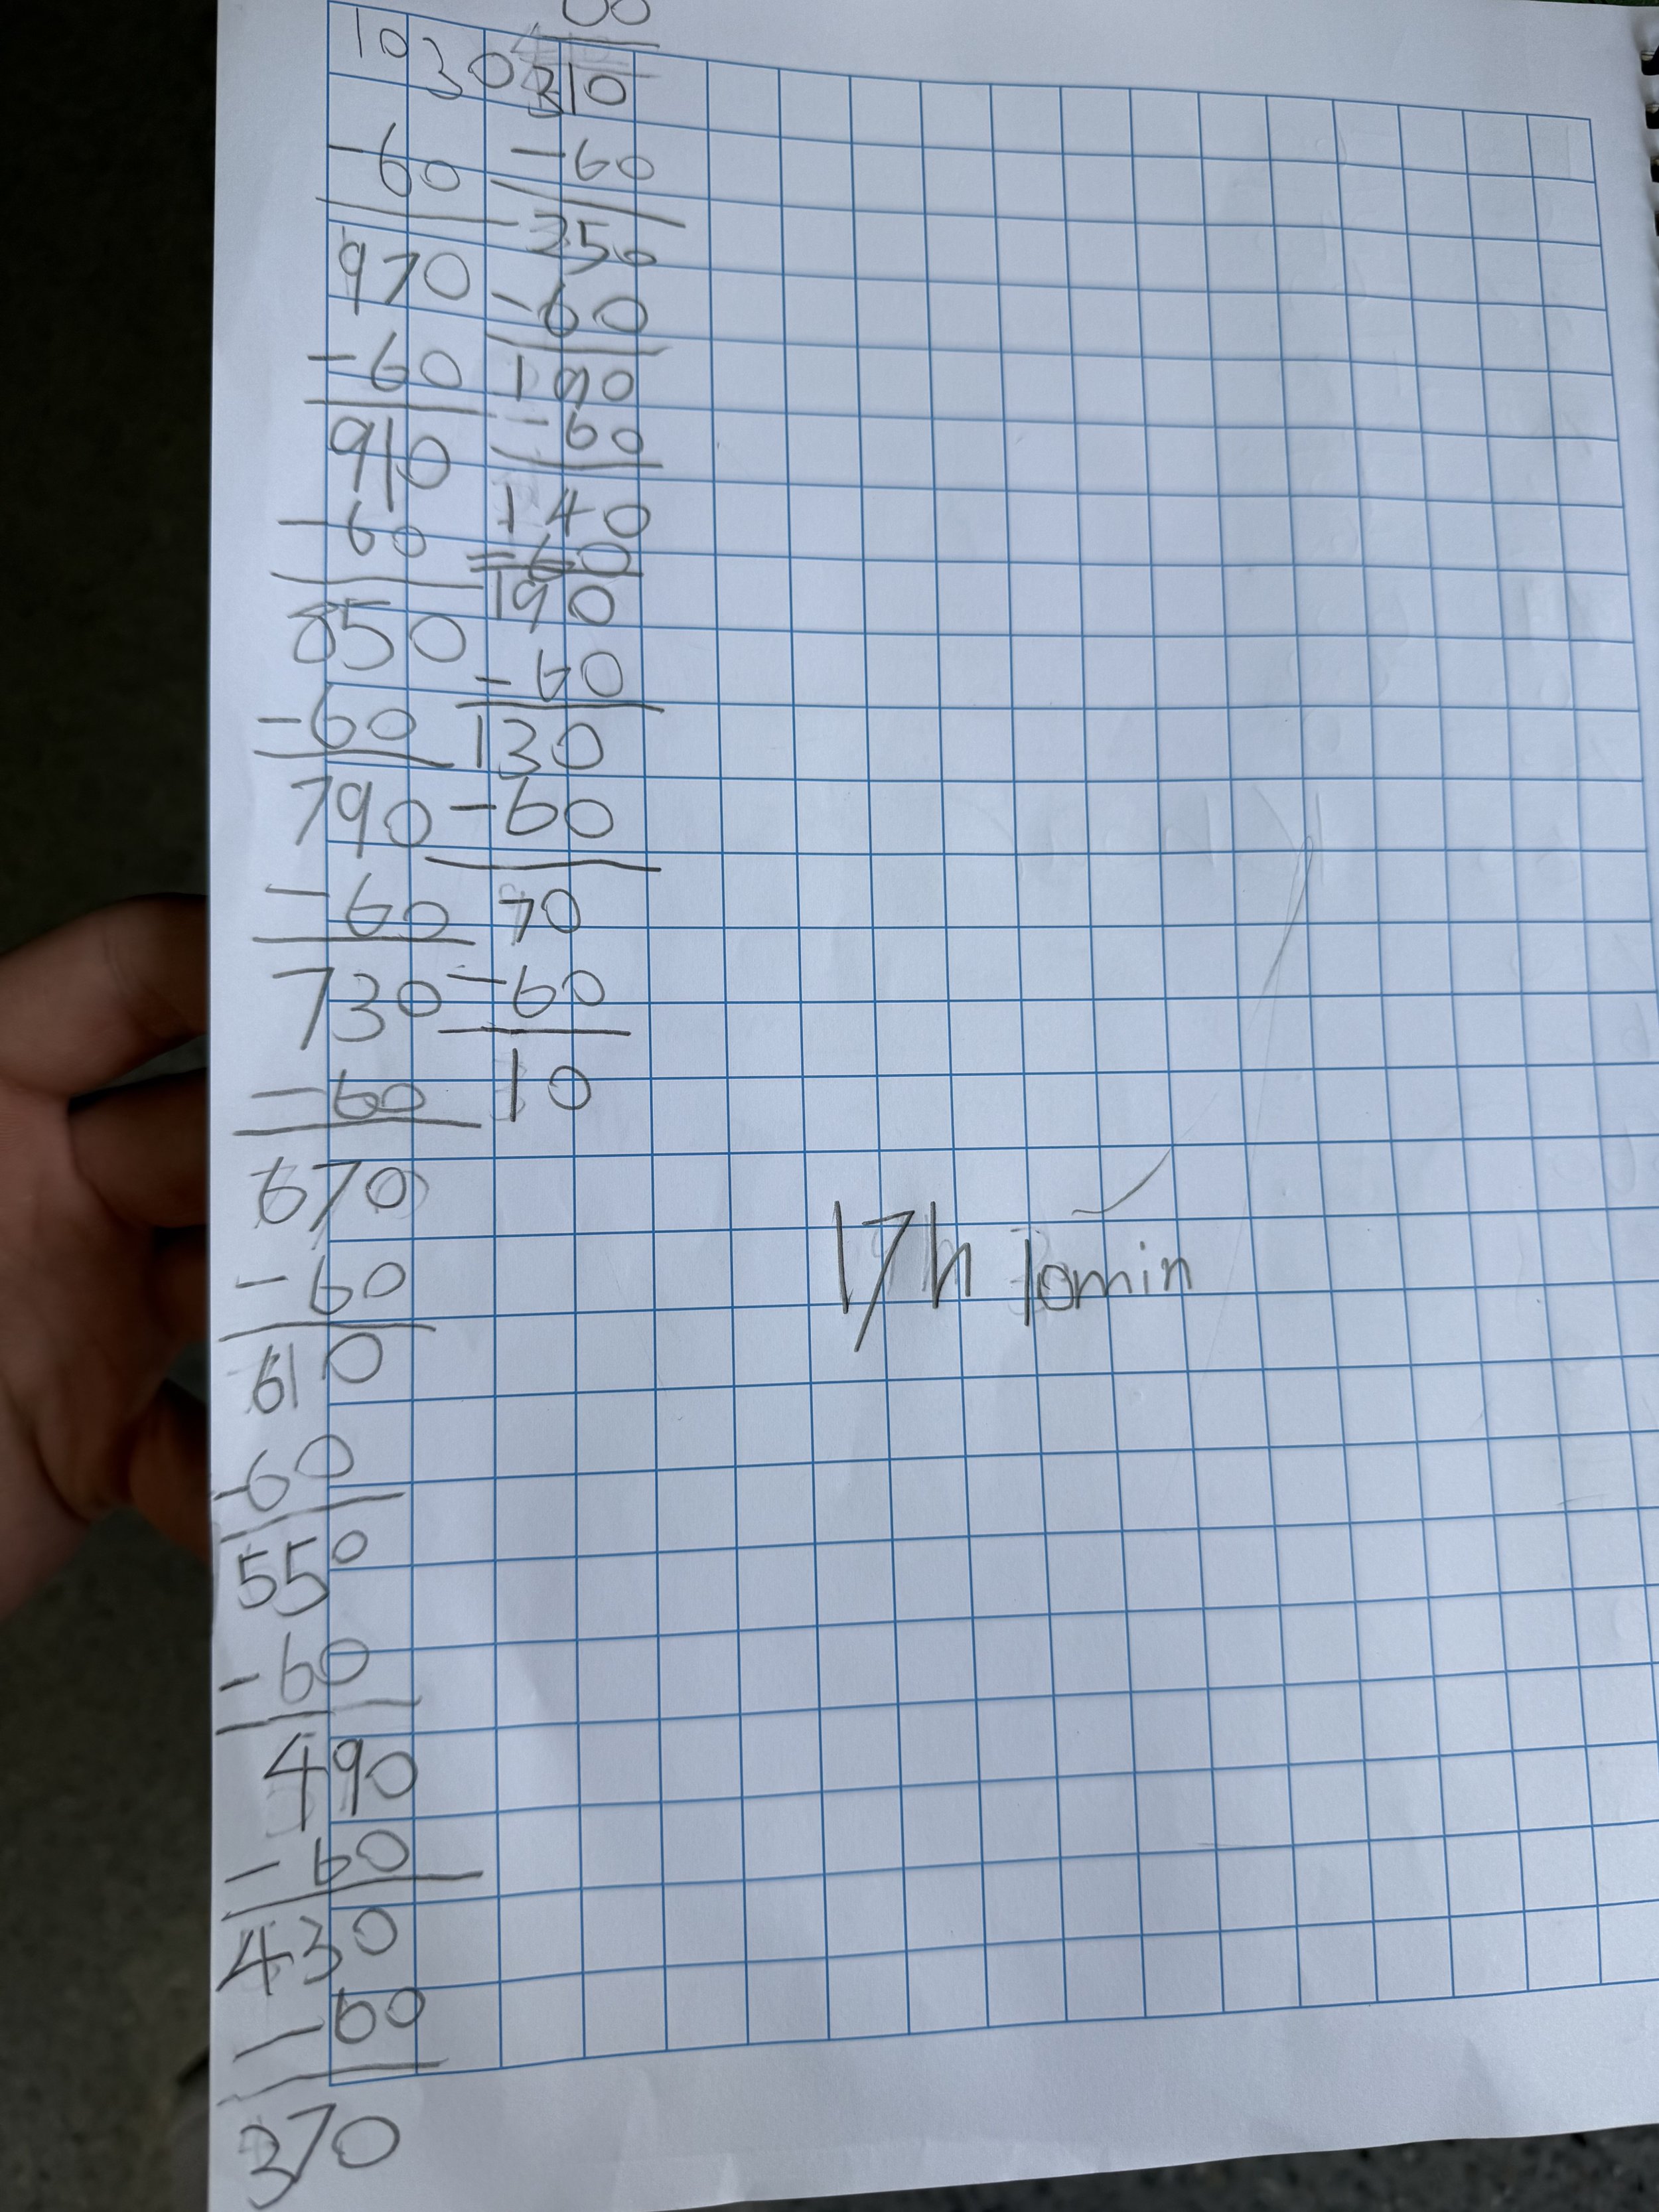 1030
-60
970
-60
910
-60
850
-60
790
-60
730
-60
670
-60
610
-60
550
-60
490
-60
430
-60
370
60
310
-60
250
-60
190
-60
140
-60
190
-60
130
-60
70
-60
10
17h 10min